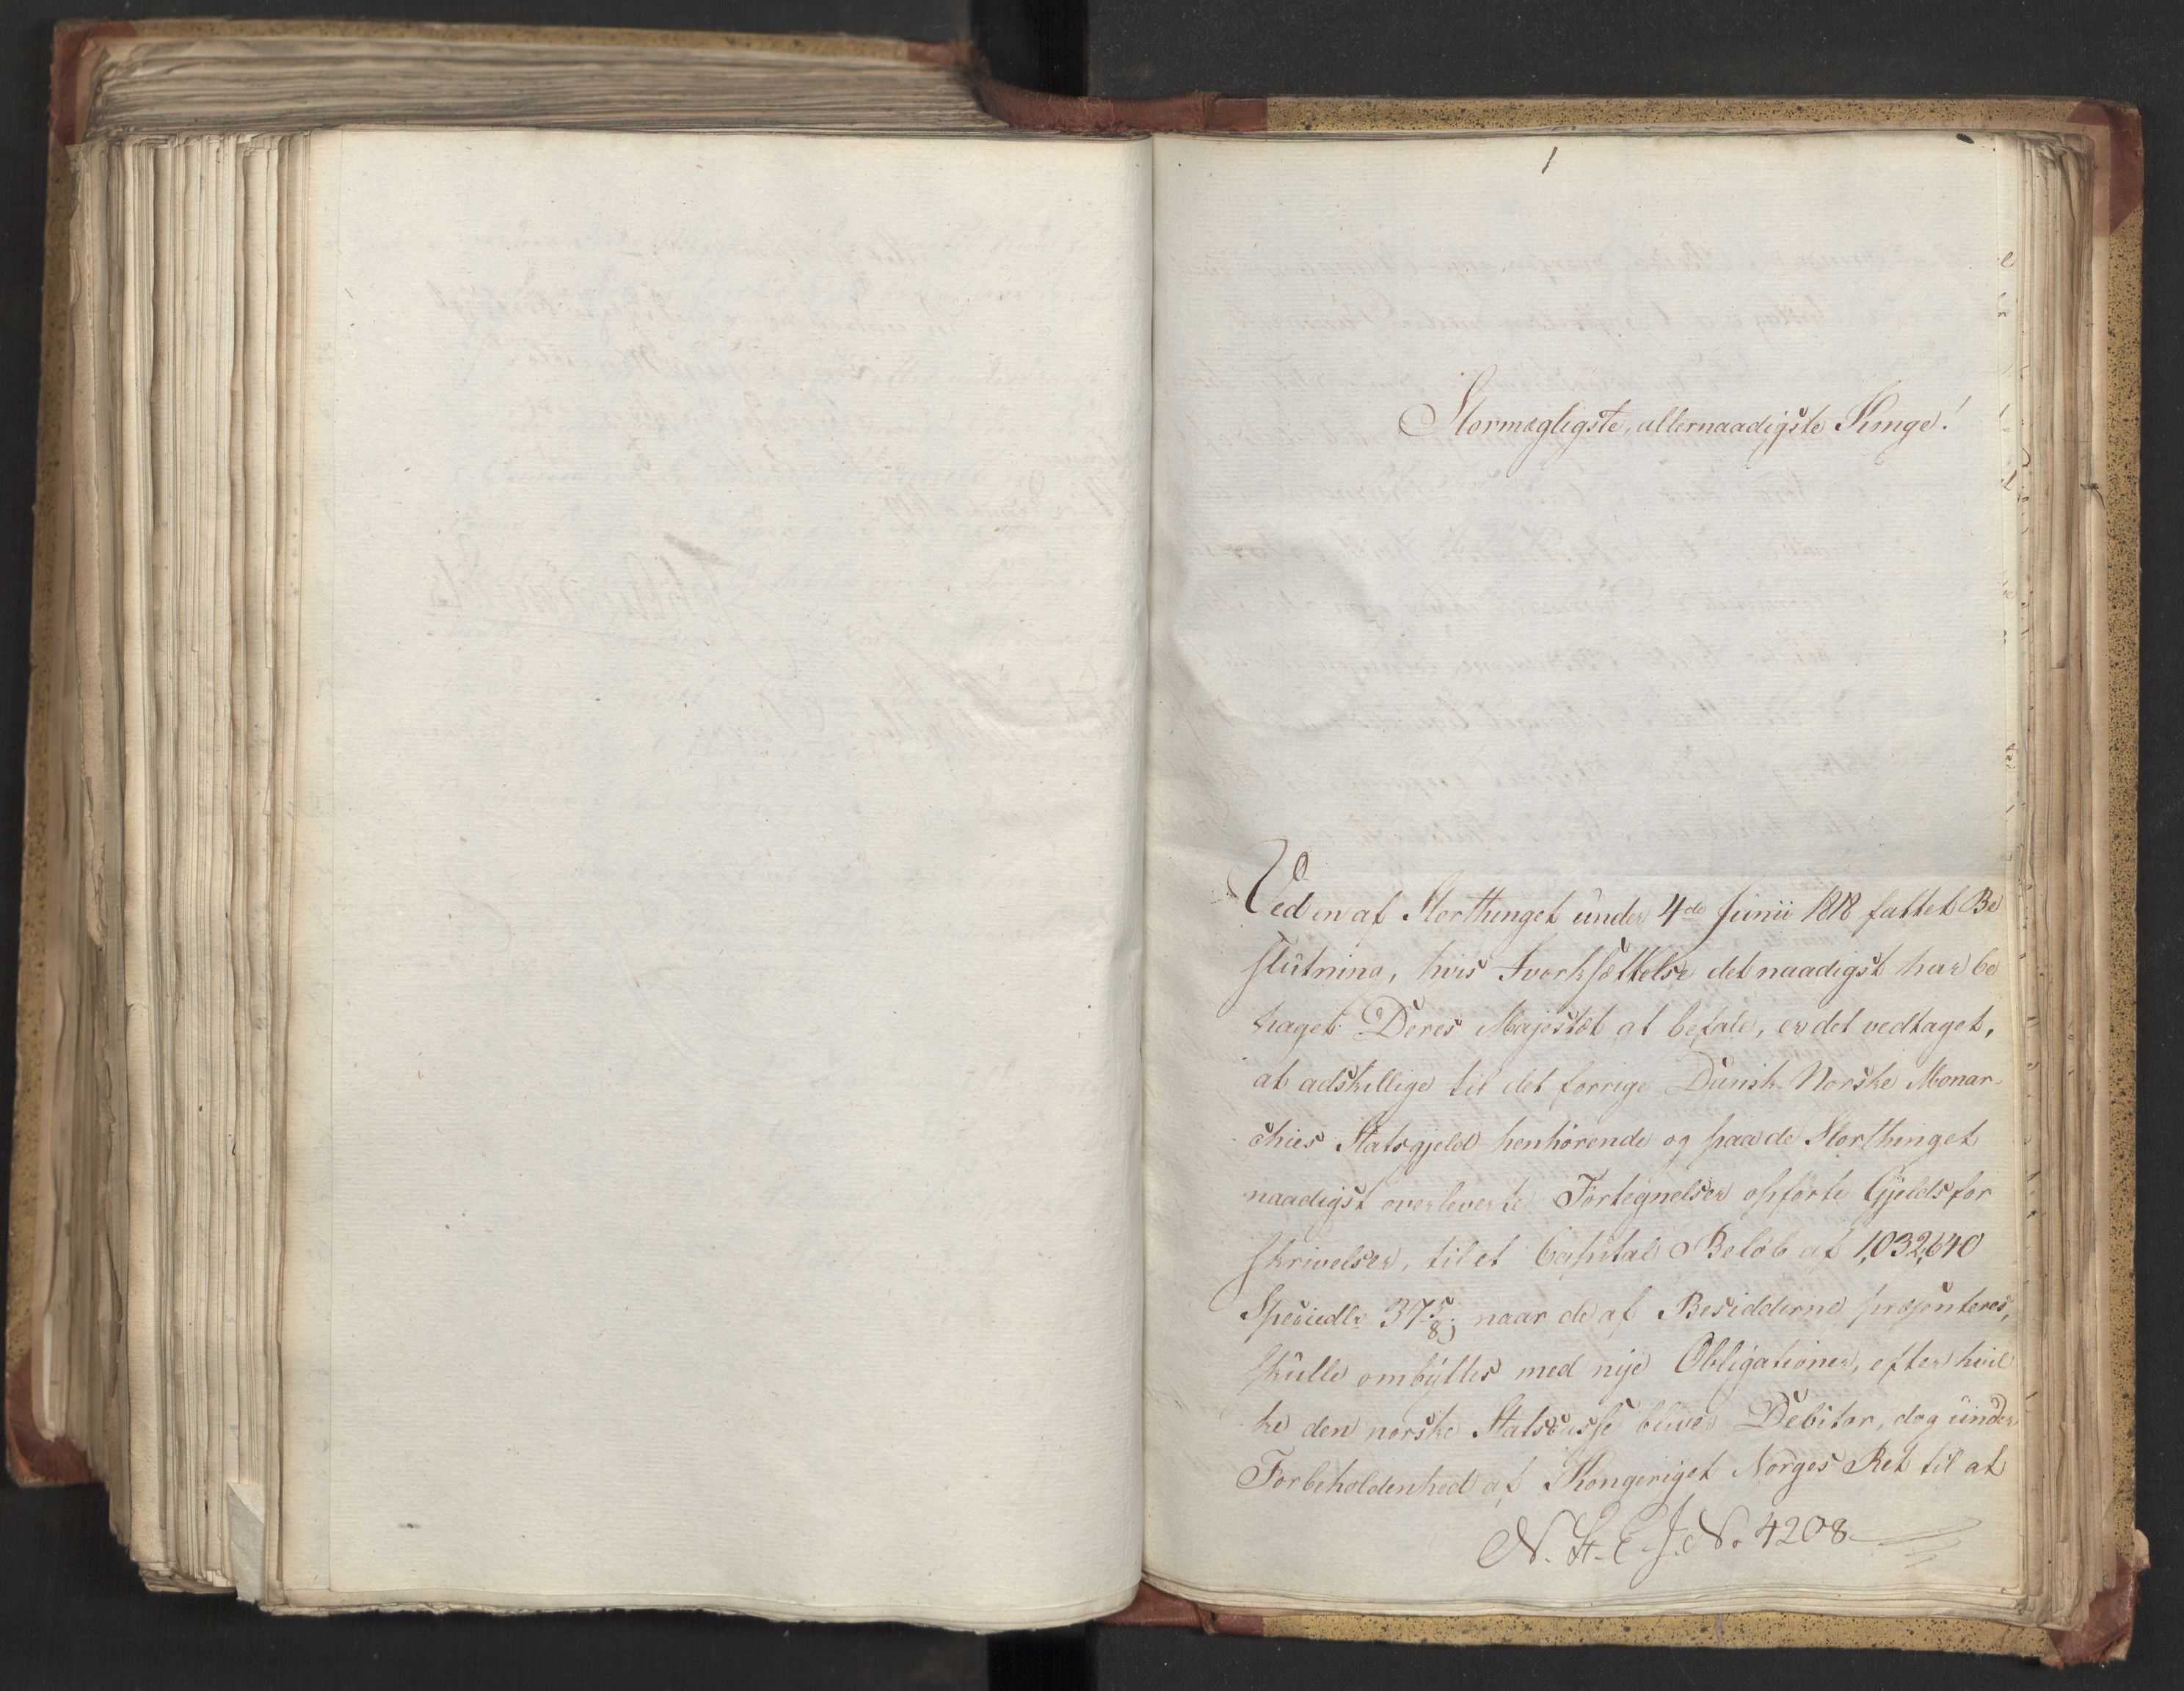 1
Stormægtigste, allernaadigste Konge!
Ved en af Storthinget under 4de Junii 1818 fattet Be
slutning, hvis Iverksættelse det naadigst har be
haget Deres Majestæt at befale, er det vedtaget,
at adskillige til det forrige Dansk-Norske Monar-
chies Statsgjeld henhörende og paa de Storthinget
naadigst overleverte Fortegnelser opförte Gjeldsfor
skrivelser, til et Capital Belöb af 1,032,640
Speciedlr 37 5/8 s; naar de af Besidderne præsenteres,
skulle ombyttes med nye Obligationer, efter hvil
ke den norske Statscasse bliver Debitor, dog under
Forbeholdenhed af Kongeriget Norges Ret til at
N. St. E. J. No. 4208